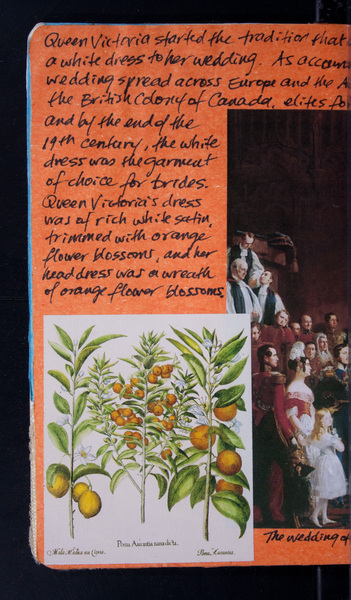 Queen Victoria started the tradition that
a white dress to her wedding. As accoun
wedding spread across Europe and the A
the British Colony of Canada, elites fo
and by the end of the
19th century, the white
dress was the garment
of choice for brides.
Queen Victoria's dress
was of rich white satin,
trimmed with orange
flower blossoms, and her
headdress was a wreath
of orange flower blossoms.
The wedding of